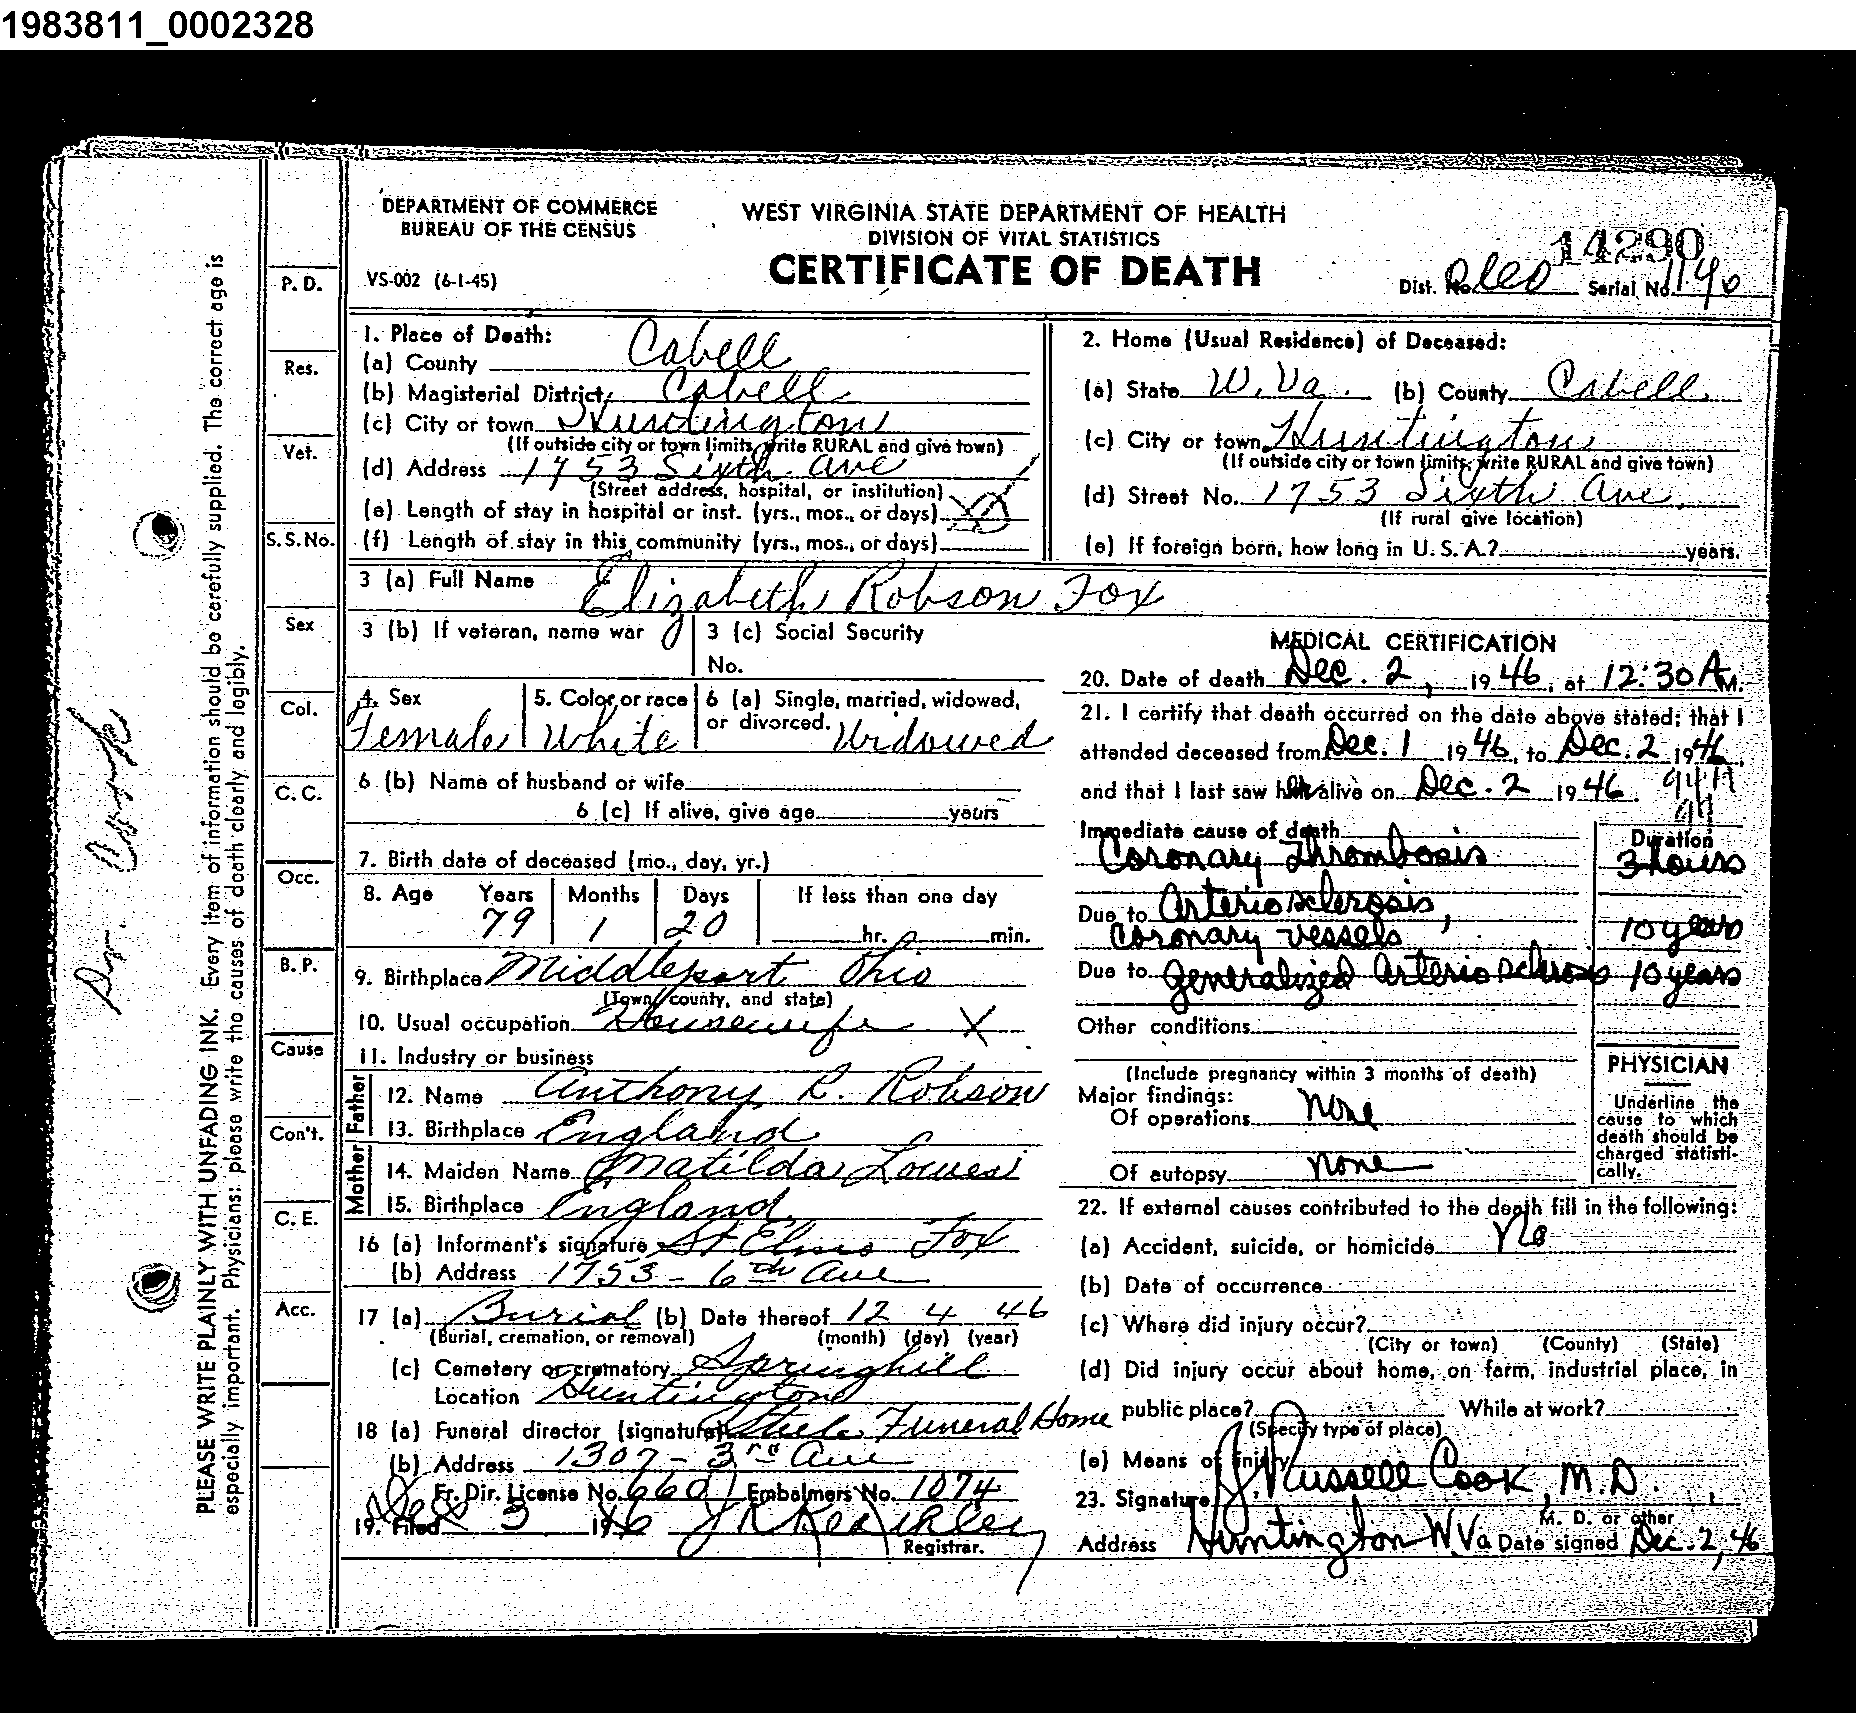 1983811_0002328
DEPARTMENT OF COMMERCE
BUREAU OF THE CENSUS
VS-002 (6-1-45)
WEST VIRGINIA STATE DEPARTMENT OF HEALTH
DIVISION OF VITAL STATISTICS
CERTIFICATE OF DEATH
14290
Dist. No. Serial No. 1190
PLEASE WRITE PLAINLY WITH UNFADING INK. Every item of information should be carefully supplied. The correct age is
especially important. Physicians: please write the causes of death clearly and legibly.
Dr. Cook
P. D.
Res.
Vet.
S. S. No.
Sex
Col.
C. C.
Occ.
B. P.
Cause
Con't.
C. E.
Acc.
1. Place of Death:
(a) County Cabell
(b) Magisterial District Cabell
(c) City or town Huntington
(If outside city or town limits, write RURAL and give town)
(d) Address 1753 Sixth Ave
(Street address, hospital, or institution)
(e) Length of stay in hospital or inst. (yrs., mos., or days)
(f) Length of stay in this community (yrs., mos., or days)
2. Home (Usual Residence) of Deceased:
(a) State W. Va. (b) County Cabell
(c) City or town Huntington
(If outside city or town limits, write RURAL and give town)
(d) Street No. 1753 Sixth Ave.
(If rural give location)
(e) If foreign born, how long in U. S. A.? years.
3 (a) Full Name Elizabeth Robson Fox
3 (b) If veteran, name war 3 (c) Social Security
No.
4. Sex 5. Color or race 6 (a) Single, married, widowed,
or divorced.
Female White Widowed
6 (b) Name of husband or wife
6 (c) If alive, give age years
7. Birth date of deceased (mo., day, yr.)
8. Age Years Months Days If less than one day
79 1 20 hr. min.
9. Birthplace Middleport Ohio
(Town, county, and state)
10. Usual occupation Housewife X
11. Industry or business
Father
12. Name Anthony R. Robson
13. Birthplace England
Mother
14. Maiden Name Matilda
15. Birthplace England
16 (a) Informant's signature St Elmo Fox
(b) Address 1753 - 6th Ave
17 (a) Burial (b) Date thereof 12 4 46
(Burial, cremation, or removal) (month) (day) (year)
(c) Cemetery or crematory Springhill
Location Huntington
18 (a) Funeral director (signature) Steele Funeral Home
(b) Address 1307 - 3rd Ave
Fr. Dir. License No. 660 Embalmers No. 1074
19. Filed Dec 3 1946
Registrar.
MEDICAL CERTIFICATION
20. Date of death Dec. 2, 1946, at 12:30 A M.
21. I certify that death occurred on the date above stated; that I
attended deceased from Dec. 1 1946, to Dec. 2 1946
and that I last saw her alive on Dec. 2 1946.
Immediate cause of death Duration
Coronary Thrombosis 3 hours
Due to Arteriosclerosis,
Coronary vessels 10 years
Due to generalized Arteriosclerosis 10 years
Other conditions
(Include pregnancy within 3 months of death)
Major findings:
Of operations none
Of autopsy none
PHYSICIAN
Underline the
cause to which
death should be
charged statisti-
cally.
22. If external causes contributed to the death fill in the following:
(a) Accident, suicide, or homicide No
(b) Date of occurrence
(c) Where did injury occur?
(City or town) (County) (State)
(d) Did injury occur about home, on farm, industrial place, in
public place? While at work?
(Specify type of place)
(e) Means of injury
23. Signature J. Russell Cook, M.D.
M. D. or other
Address Huntington W. Va Date signed Dec. 2, 46